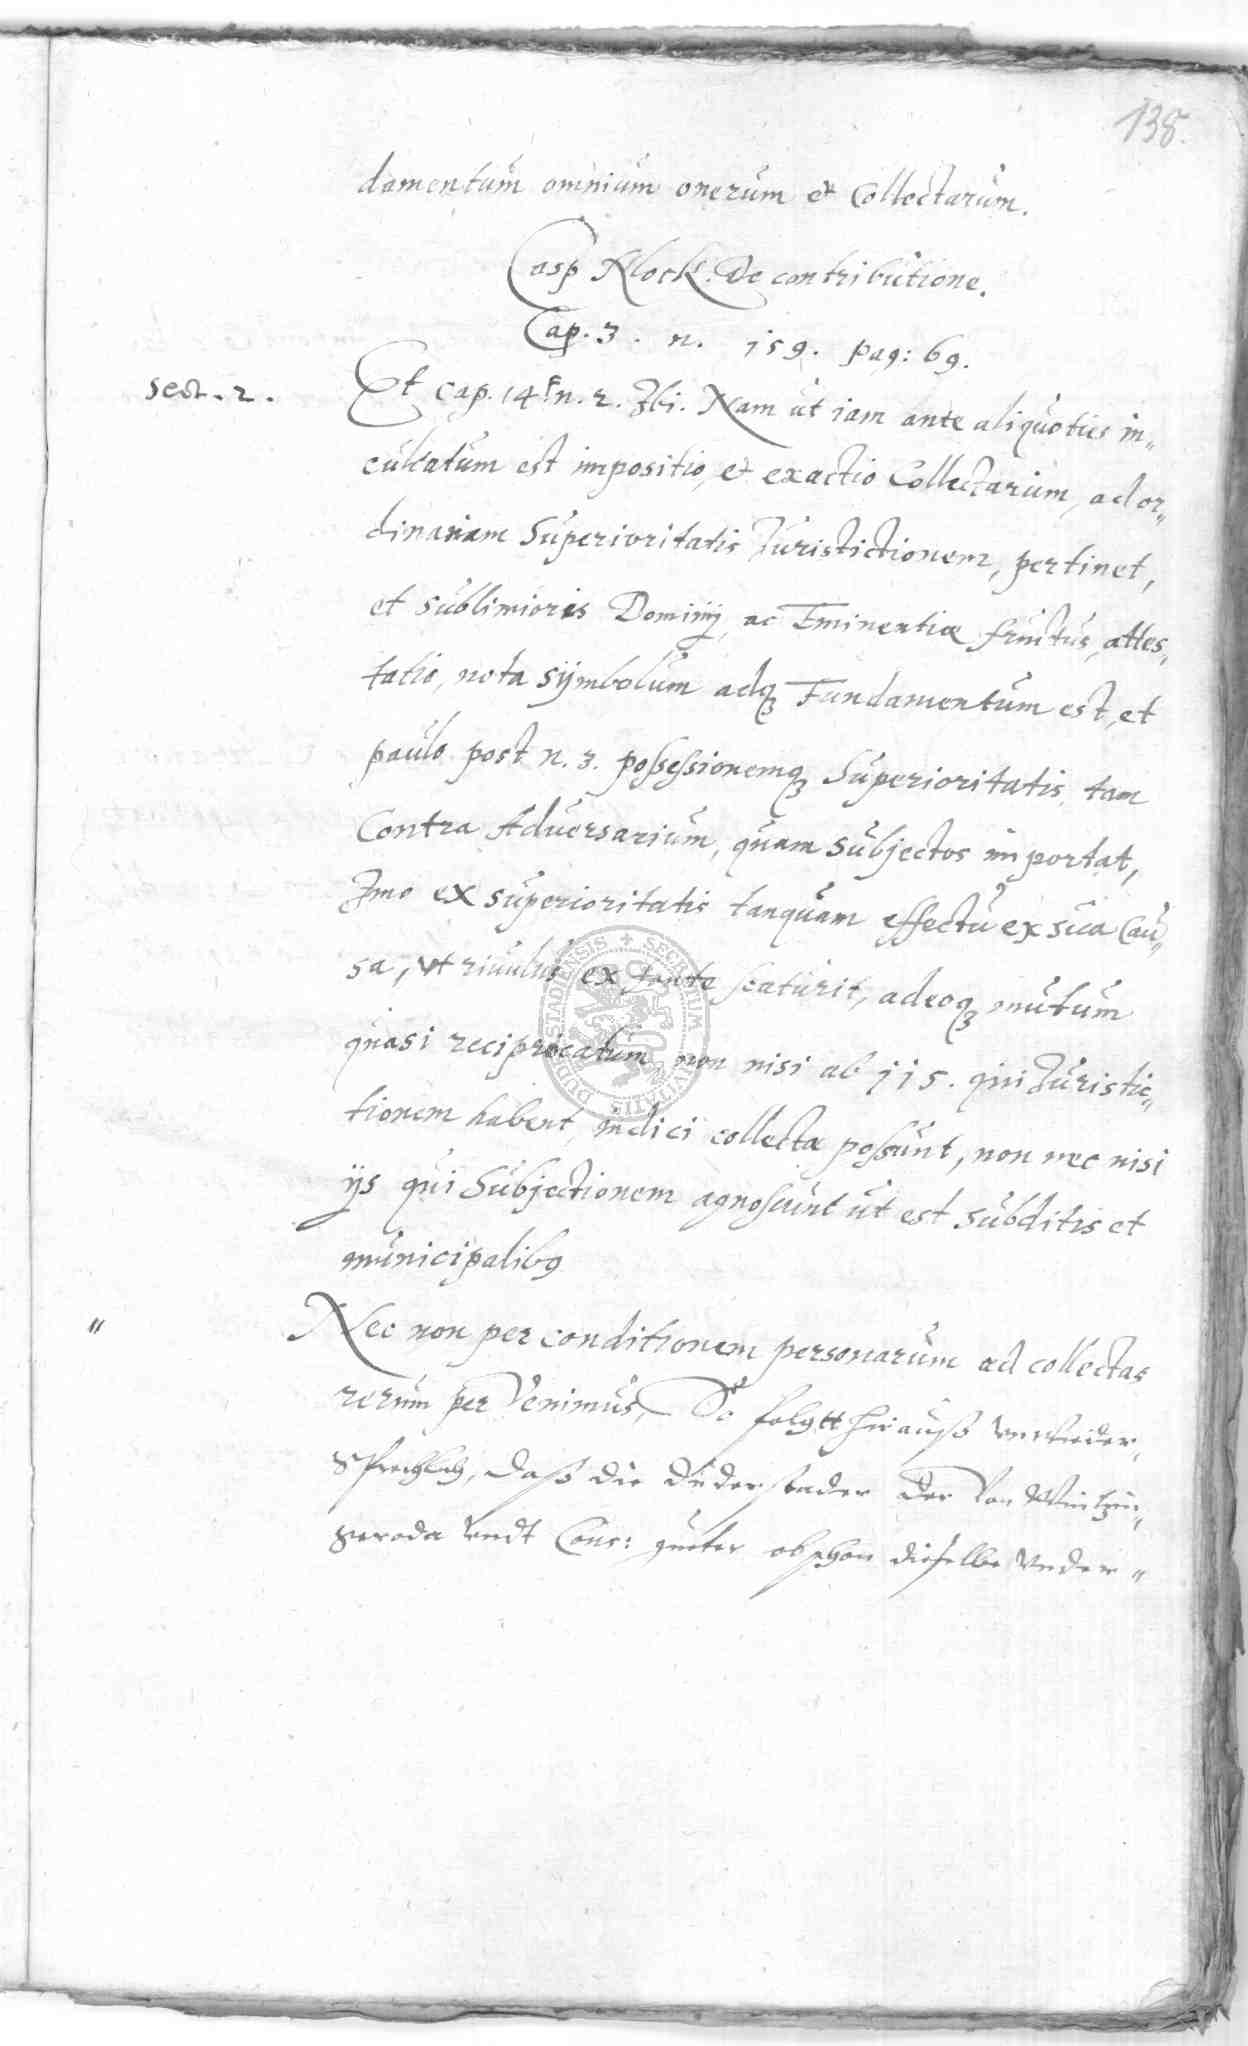 138.
damentum omnium onerum et Collectarum.
Casp Klock. De contributione.
Cap. 3. n. 159. pag: 69.
Sect. 2.
Et cap. 14 n. 2. Ibi. Nam ut iam ante aliquoties in„
culcatum est impositio, et exactio Collectarum, ad or„
dinariam Superioritatis Juristictionem, pertinet,
et sublimioris Dominij, ac Eminentiæ fructus, attes„
tatio, nota sijmbolum adq₃ Fundamentum est, et
paulo post n. 3. possessionemq₃ Superioritatis, tam
Contra Adversarium, quam Subjectos importat,
Imo ex superioritatis tanquam effectu ex sua Cau„
sa, ut rivulus ex fonte scaturit, adeoq₃ mutum
quasi reciprocatum non nisi ab iis. qui Juristic„
tionem habent, indici collectæ possunt, non nec nisi
ijs qui Subjectionem agnoscunt ut est subditis et
municipalibꝯ
„ Nec non per conditionem personarum ad collectas
rerum per Venimus, So folgtt hierauß unwieder„
sprechlich, daß die Duderstader der Von Wintzin„
geroda undt Cons: gueter obschon dieselbe under„
DUDERSTADIENSIS + SECRETUM CIVITATIS